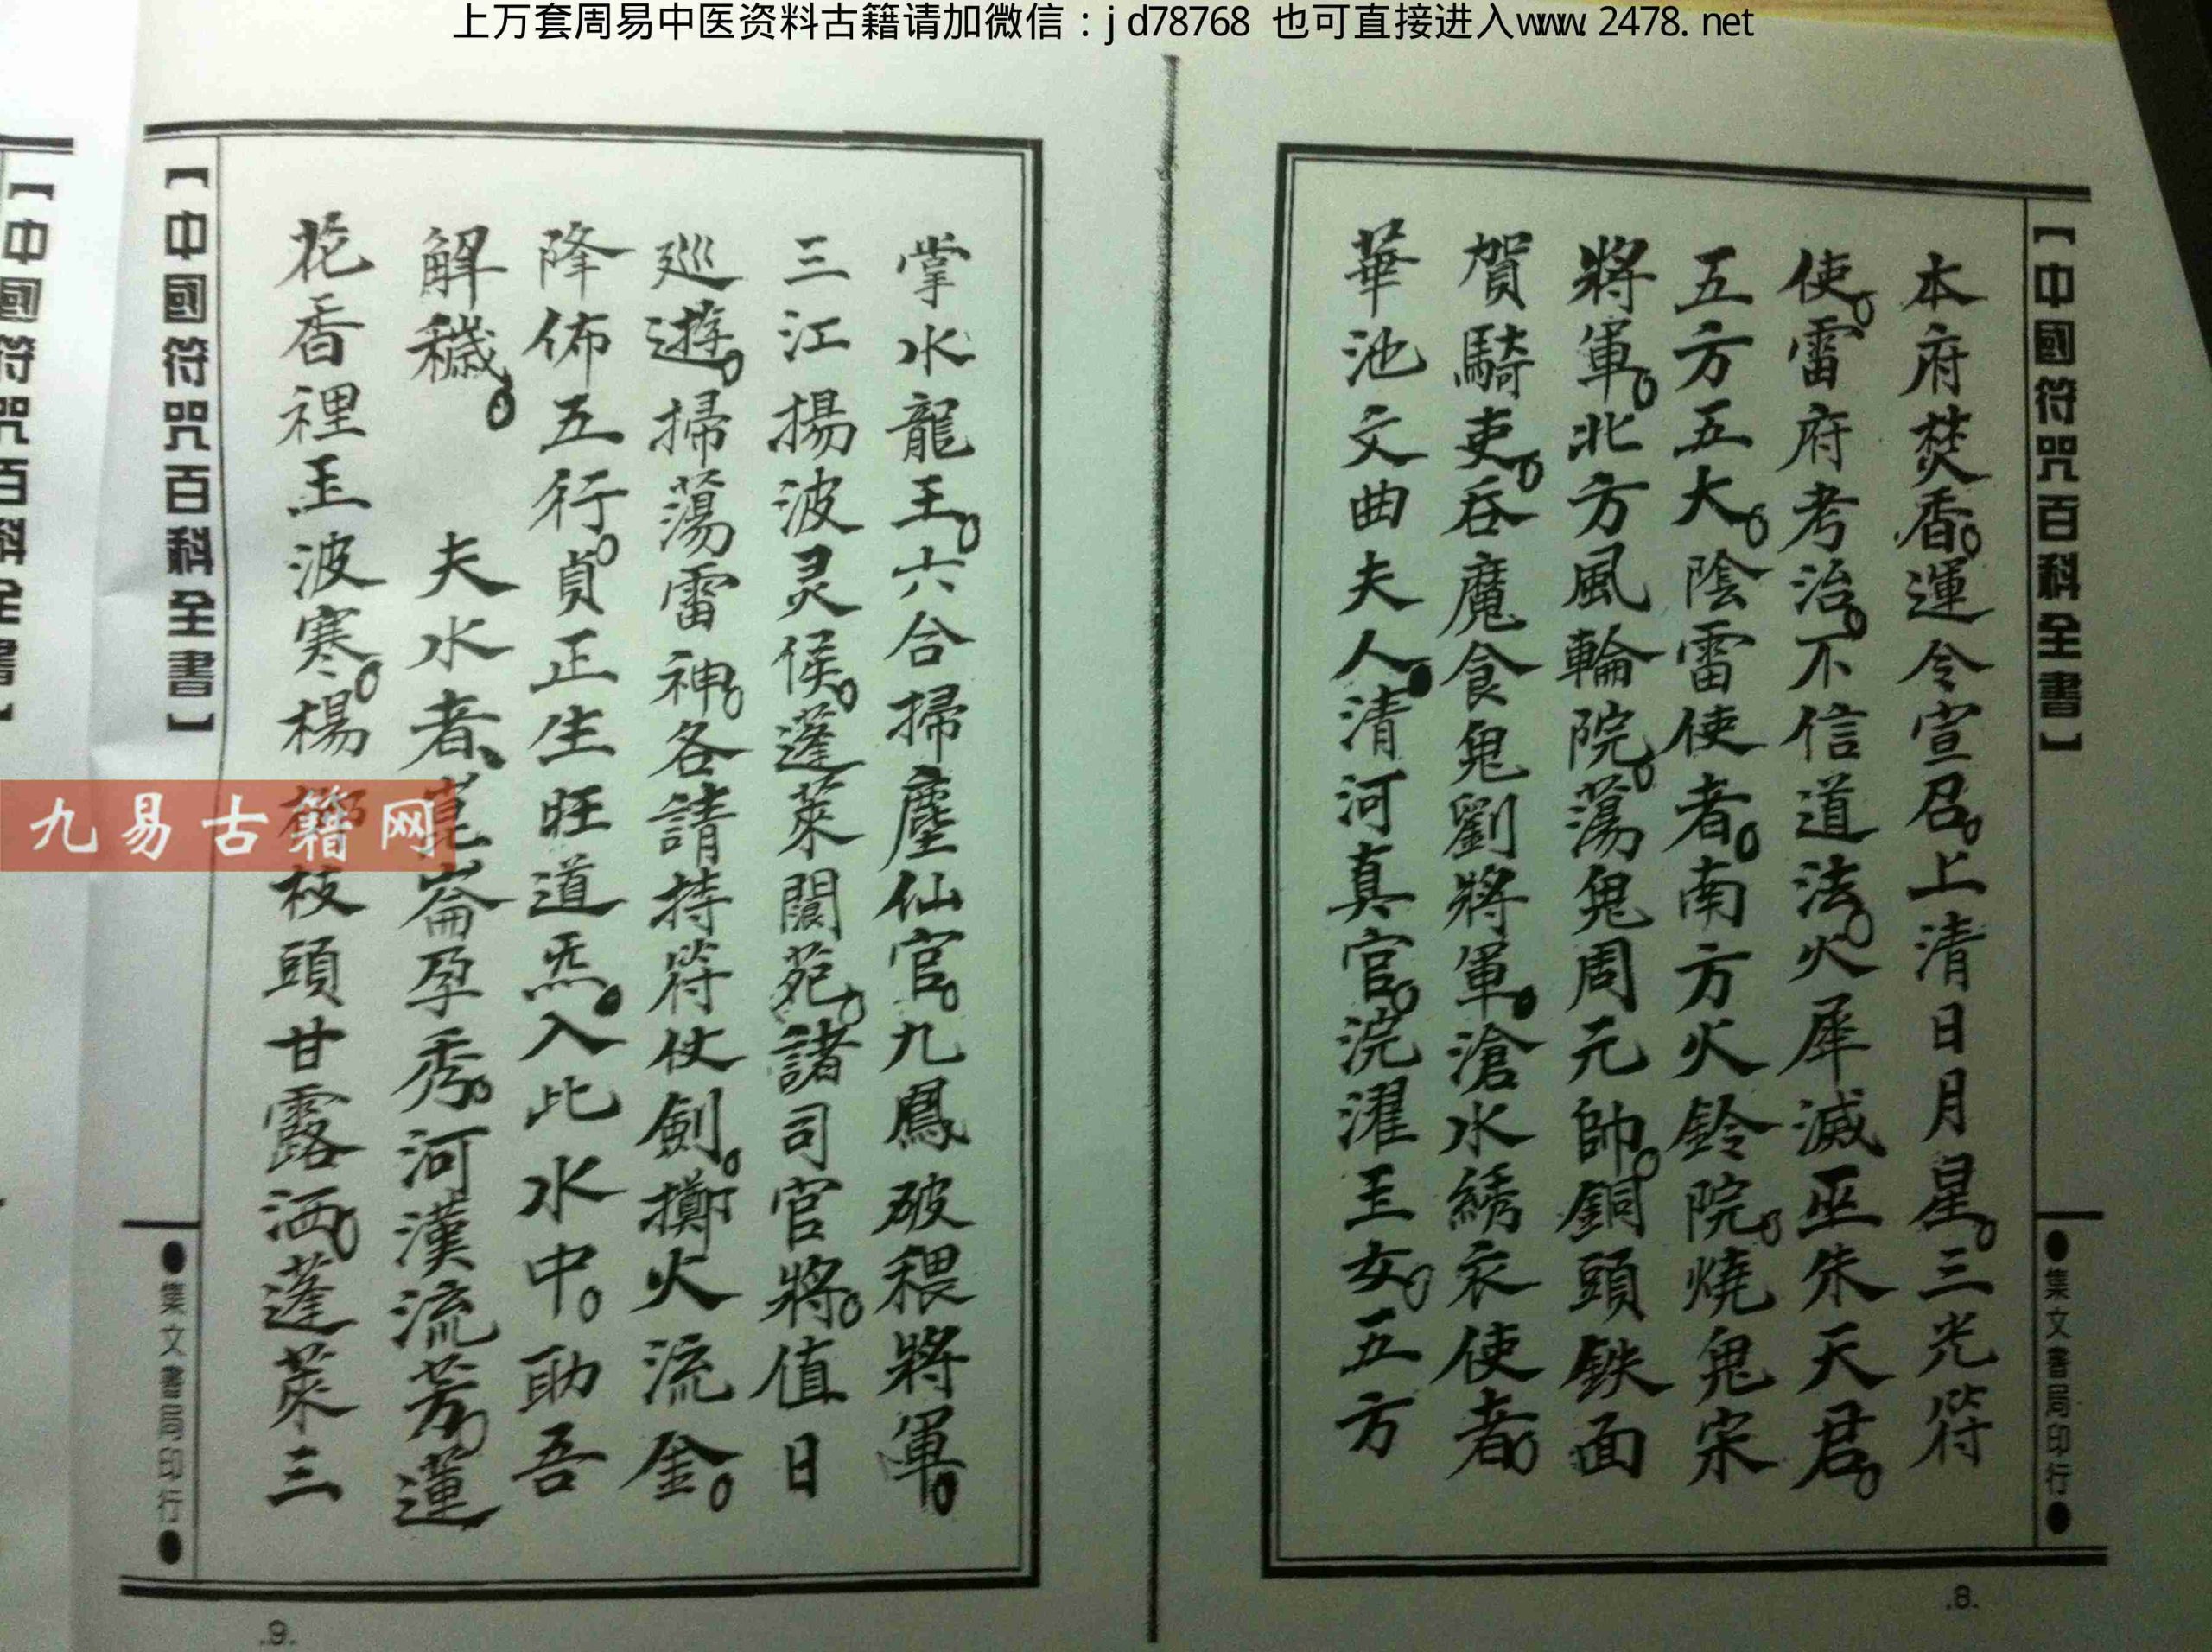 上万套周易中医资料古籍请加微信：jd78768 也可直接进入www.2478.net
【中國符咒百科全書】
●集文書局印行●
本府焚香。運令宣召。上清日月星。三光符
使。雷府考治。不信道法。火犀滅巫朱天君。
五方五大。陰雷使者。南方火鈴院。燒鬼宋
將軍。北方風輪院。蕩鬼周元帥。銅頭鉄面
賀騎吏。吞魔食鬼劉將軍。滄水綉衣使者。
華池文曲夫人。清河真官。浣濯玉女。五方
.8.
掌水龍王。六合掃塵仙官。九鳳破穢將軍。
三江揚波灵侯。蓬萊閬苑。諸司官將。值日
巡遊。掃蕩雷神。各請持符仗劍。擲火流金。
降佈五行。貞正生旺道炁。入此水中。助吾
解穢。 夫水者、崑崙孕秀。河漢流芳。蓮
花香裡玉波寒。楊柳枝頭甘露洒。蓬萊三
【中國符咒百科全書】
●集文書局印行●
.9.
【中國符咒百科全書】
九易古籍网